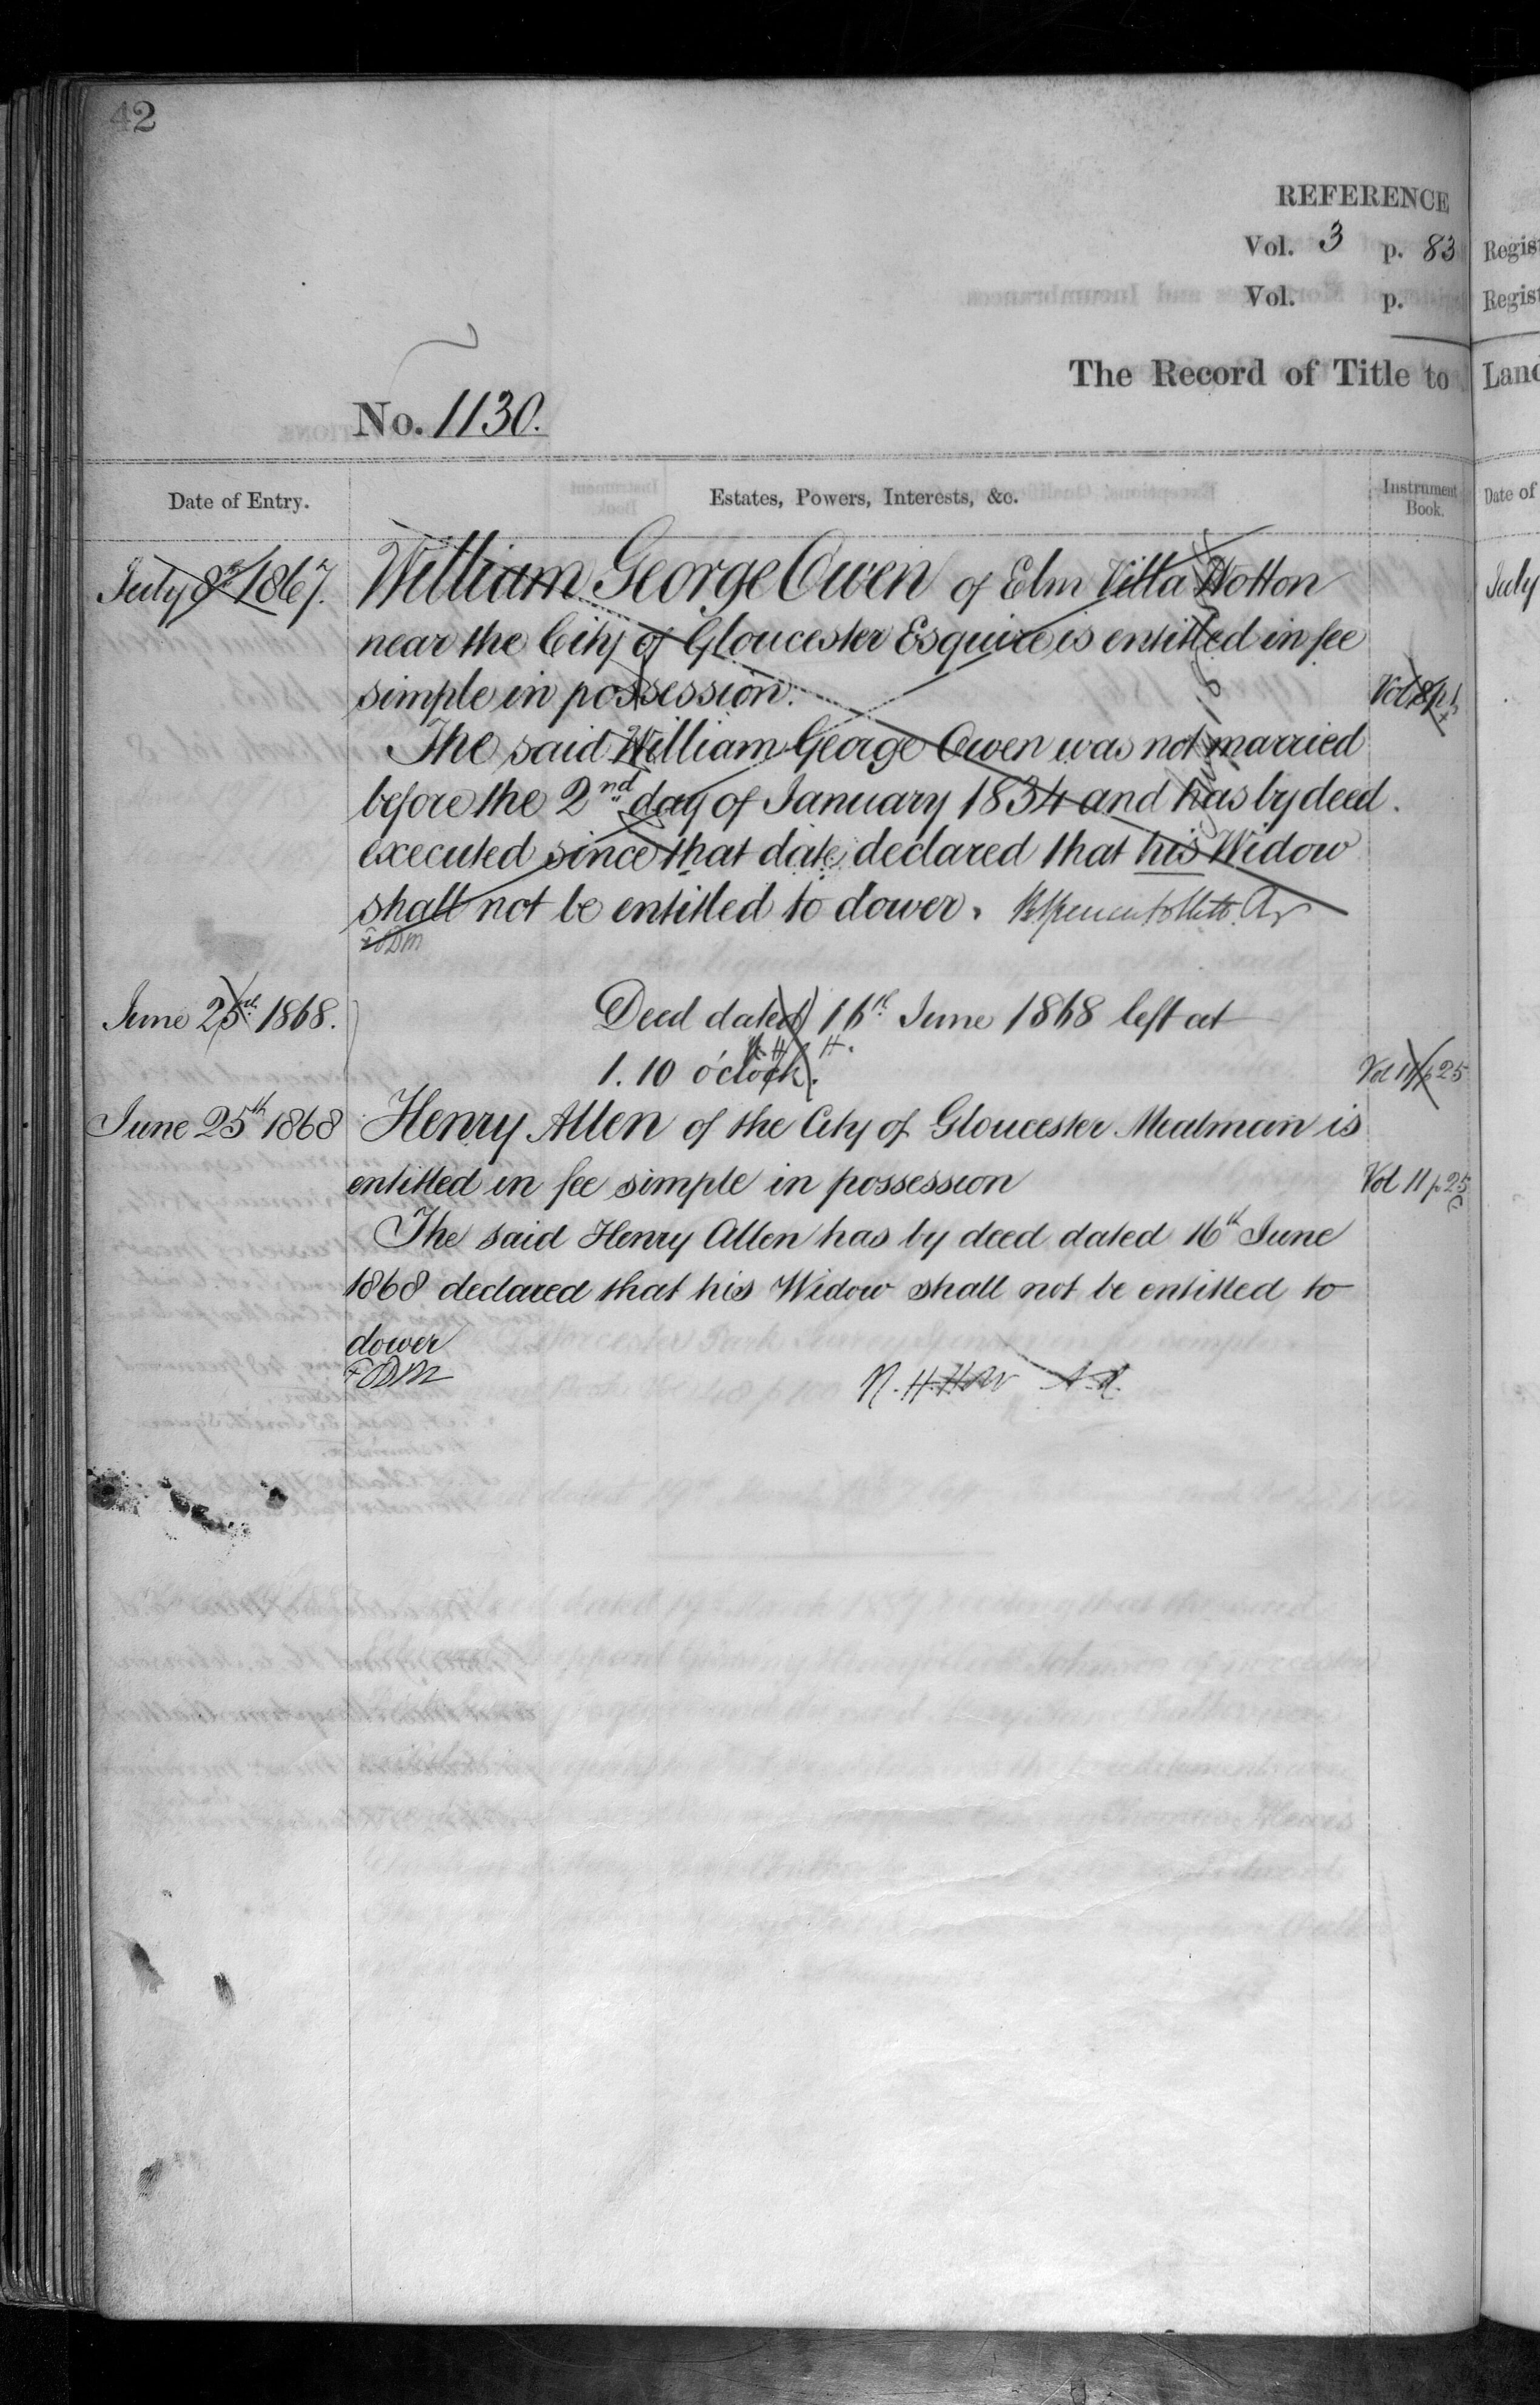 42
REFERENCE
Vol. 3 p. 83
Vol. p.
The Record of Title to
No. 1130.
Date of Entry. Estates, Powers, Interests, &c. Instrument Book.
July 8th 1867. William George Owen of Elm Villa Wotton
near the City of Gloucester Esquire is entitled in fee
simple in possession. Vol 8 p 1
The said William George Owen was not married
before the 2nd day of January 1834 and has by deed
executed since that date declared that his Widow
shall not be entitled to dower.
June 25th 1868. Deed dated 16th June 1868 left at
1.10 o'clock. Vol 11 p 25
June 25th 1868 Henry Allen of the City of Gloucester Mealman is
entitled in fee simple in possession Vol 11 p 25
The said Henry Allen has by deed dated 16th June
1868 declared that his Widow shall not be entitled to
dower
Regist
Regist
Land
Date of
July